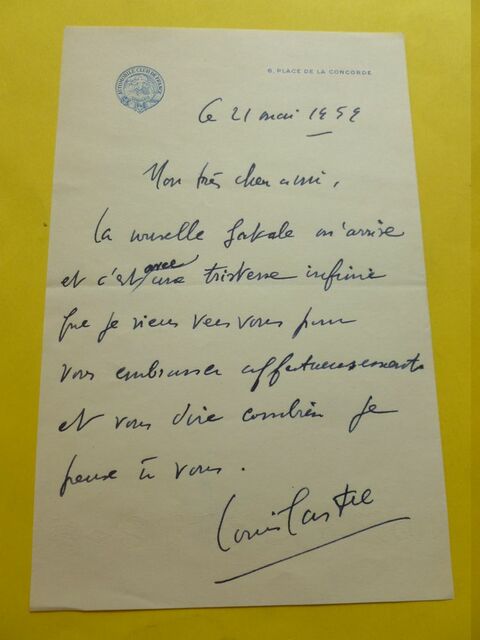 AUTOMOBILE CLUB DE FRANCE
6, PLACE DE LA CONCORDE
Le 21 mai 1959
Mon très cher ami,
La nouvelle fatale m'arrive
et c'est avec une tristesse infinie
que je viens vers vous pour
vous embrasser affectueusement
et vous dire combien je
pense à vous.
Louis Castel